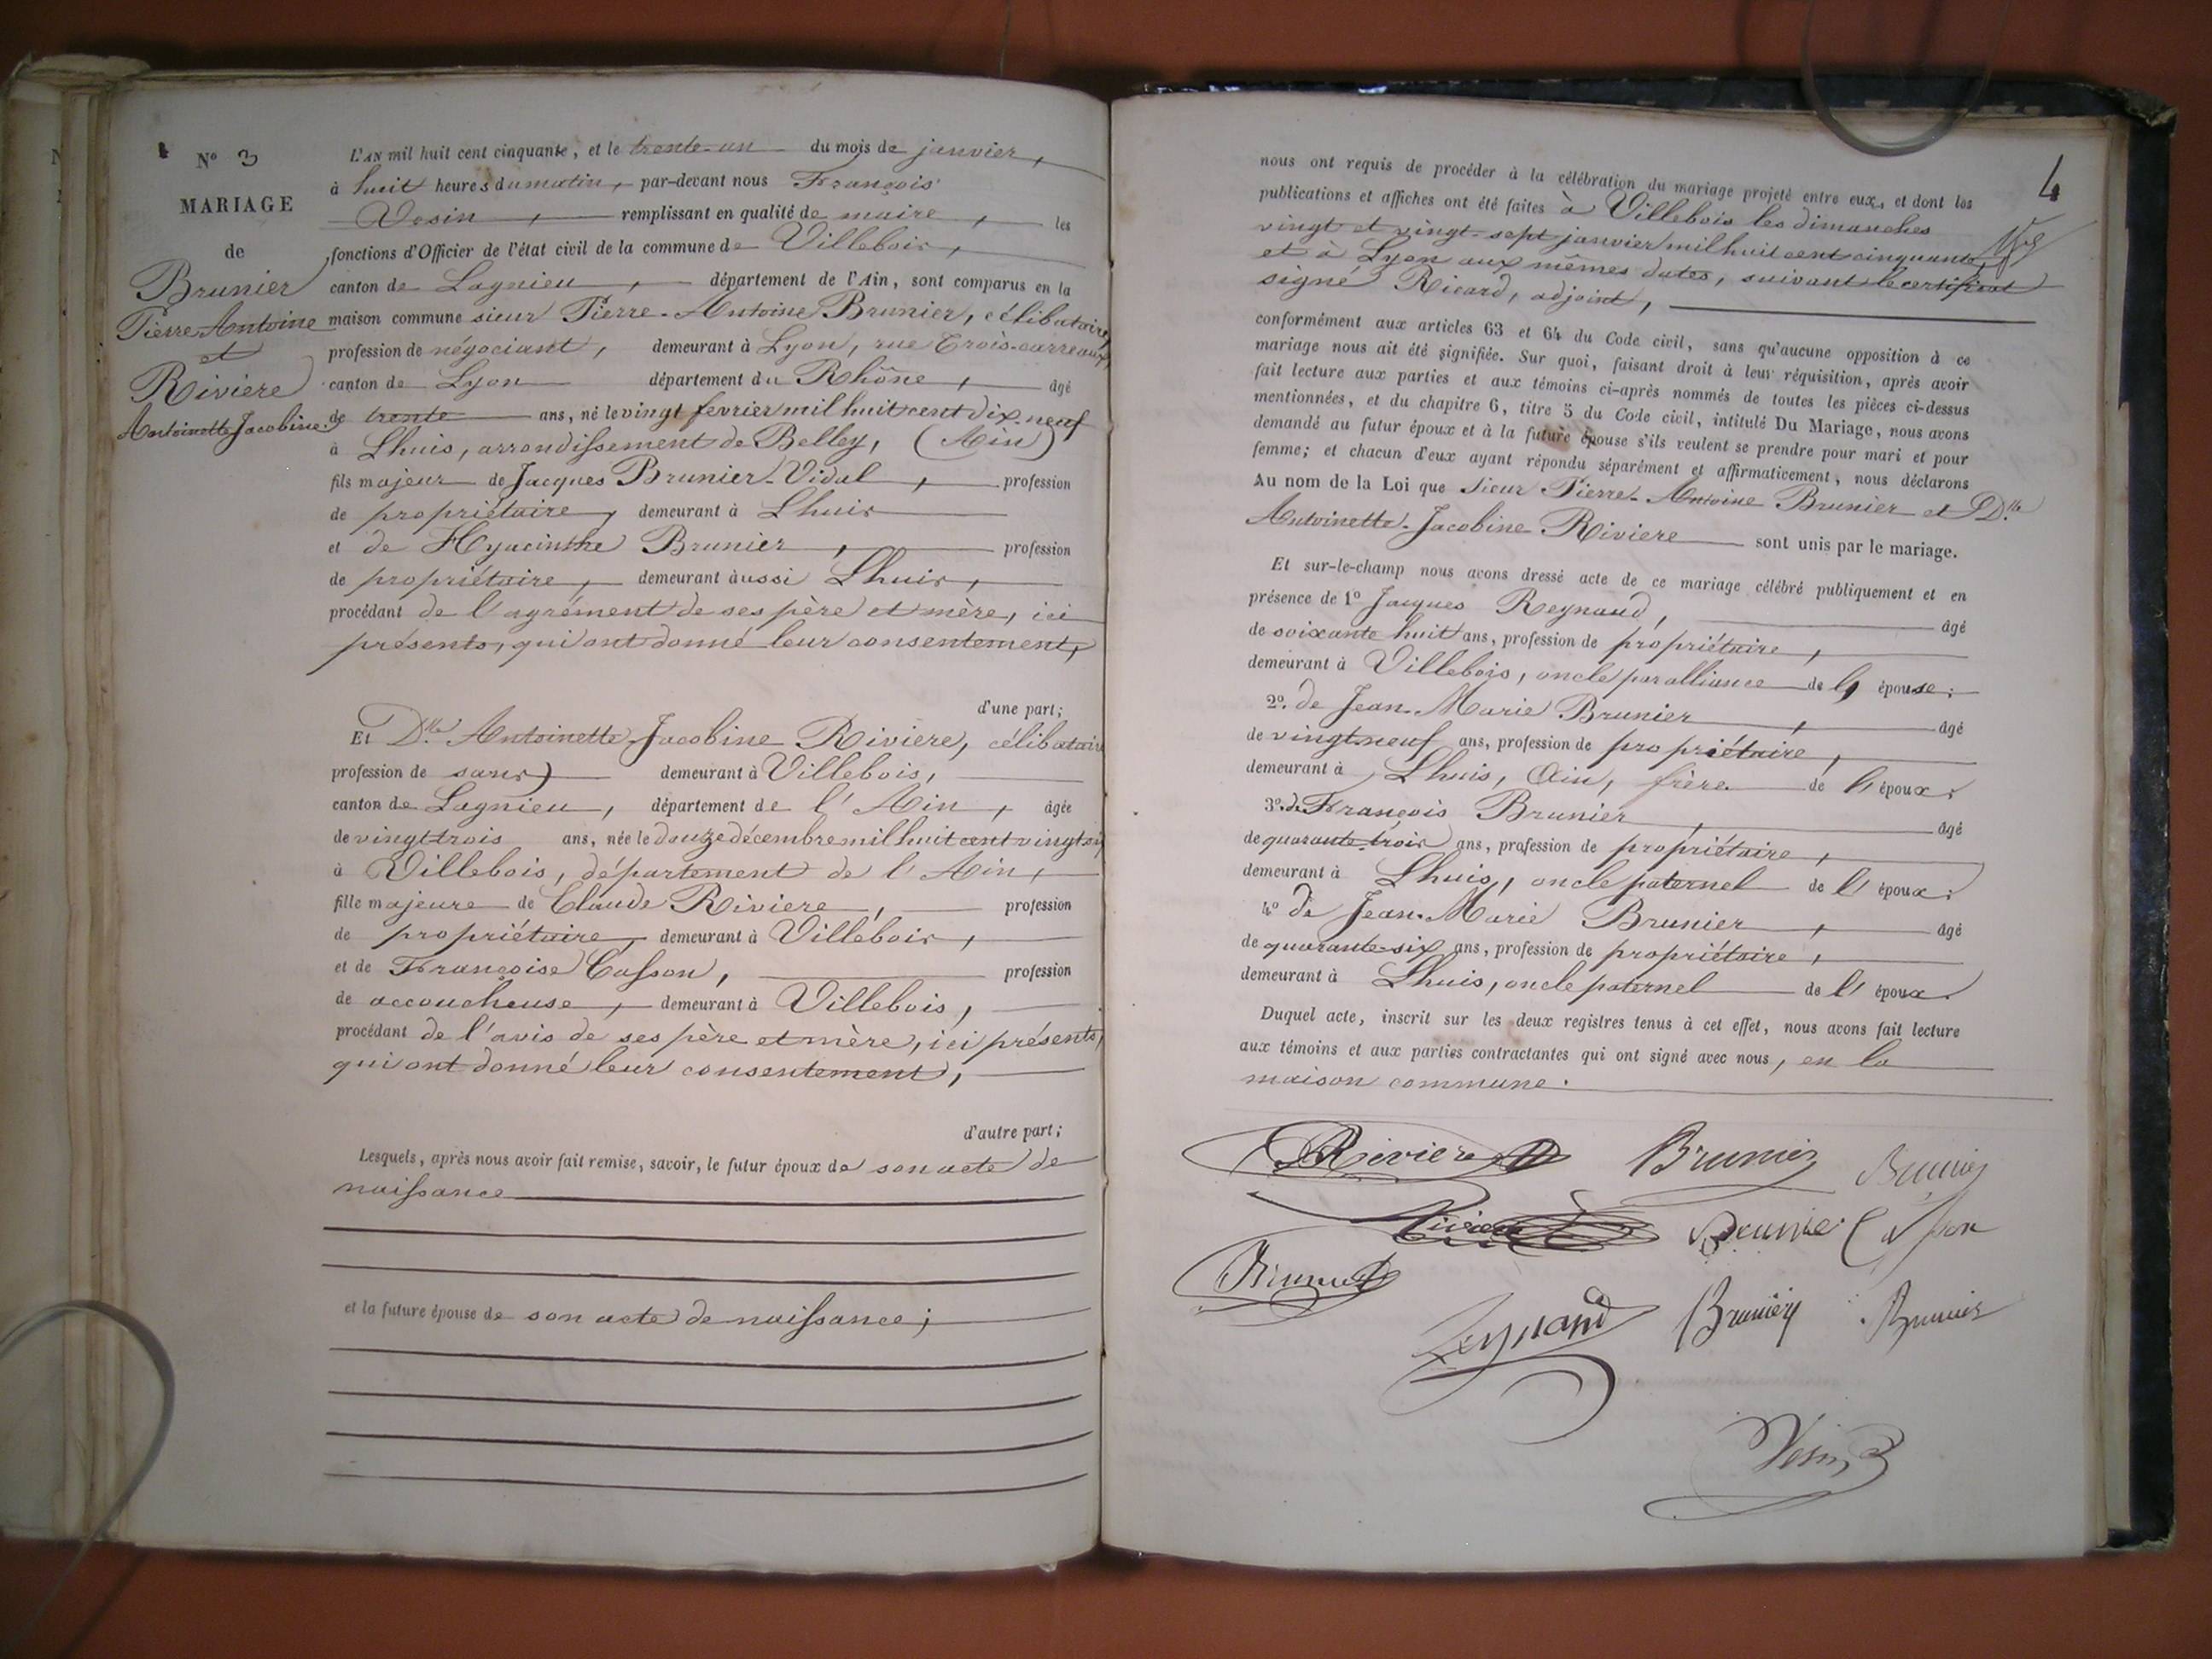 N° 3
MARIAGE
de
Brunier
Pierre Antoine
et
Riviere
Antoinette Jacobine
L'AN mil huit cent cinquante, et le trente-un du mois de janvier,
à huit heures du matin, par-devant nous François
Vesin, remplissant en qualité de maire, les
fonctions d'Officier de l'état civil de la commune de Villebois,
canton de Lagnieu, département de l'Ain, sont comparus en la
maison commune sieur Pierre-Antoine Brunier, célibataire,
profession de négociant, demeurant à Lyon, rue Trois-carreaux,
canton de Lyon département du Rhône, âgé
de trente ans, né le vingt fevrier mil huit cent dix-neuf
à Lhuis, arrondissement de Belley, (Ain)
fils majeur de Jacques Brunier-Vidal, profession
de propriétaire, demeurant à Lhuis
et de Hyacinthe Brunier, profession
de propriétaire, demeurant aussi Lhuis,
procédant de l'agrément de ses père et mère, ici
présents, qui ont donné leur consentement,
d'une part;
Et Dlle Antoinette-Jacobine Riviere, célibataire
profession de sans demeurant à Villebois,
canton de Lagnieu, département de l'Ain, âgée
de vingt trois ans, née le douze décembre mil huit cent vingt six
à Villebois, département de l'Ain,
fille majeure de Claude Riviere, profession
de propriétaire, demeurant à Villebois,
et de Françoise Casson, profession
de accoucheuse, demeurant à Villebois,
procédant de l'avis de ses père et mère, ici présents,
qui ont donné leur consentement,
d'autre part;
Lesquels, après nous avoir fait remise, savoir, le futur époux de son acte de
naissance
et la future épouse de son acte de naissance;
4
nous ont requis de procéder à la célébration du mariage projeté entre eux, et dont les
publications et affiches ont été faites à Villebois les dimanches
vingt et vingt-sept janvier mil huit cent cinquante,
et à Lyon aux mêmes dates, suivant le certificat
signé Ricard, adjoint,
conformément aux articles 63 et 64 du Code civil, sans qu'aucune opposition à ce
mariage nous ait été signifiée. Sur quoi, faisant droit à leur réquisition, après avoir
fait lecture aux parties et aux témoins ci-après nommés de toutes les pièces ci-dessus
mentionnées, et du chapitre 6, titre 5 du Code civil, intitulé Du Mariage, nous avons
demandé au futur époux et à la future épouse s'ils veulent se prendre pour mari et pour
femme; et chacun d'eux ayant répondu séparément et affirmativement, nous déclarons
Au nom de la Loi que sieur Pierre-Antoine Brunier et Dlle
Antoinette-Jacobine Riviere sont unis par le mariage.
Et sur-le-champ nous avons dressé acte de ce mariage célébré publiquement et en
présence de 1° Jacques Reynaud, âgé
de soixante huit ans, profession de propriétaire,
demeurant à Villebois, oncle par alliance de l' épouse;
2° de Jean-Marie Brunier, âgé
de vingt-neuf ans, profession de propriétaire,
demeurant à Lhuis, Ain, frère de l' époux;
3° de François Brunier, âgé
de quarante-trois ans, profession de propriétaire,
demeurant à Lhuis, oncle paternel de l' époux;
4° de Jean-Marie Brunier, âgé
de quarante-six ans, profession de propriétaire,
demeurant à Lhuis, oncle paternel de l' époux.
Duquel acte, inscrit sur les deux registres tenus à cet effet, nous avons fait lecture
aux témoins et aux parties contractantes qui ont signé avec nous, en la
maison commune.
Riviere Brunier Brunier
Riviere Brunier Casson
Brunier
Reynaud Brunier Brunier
Vesin